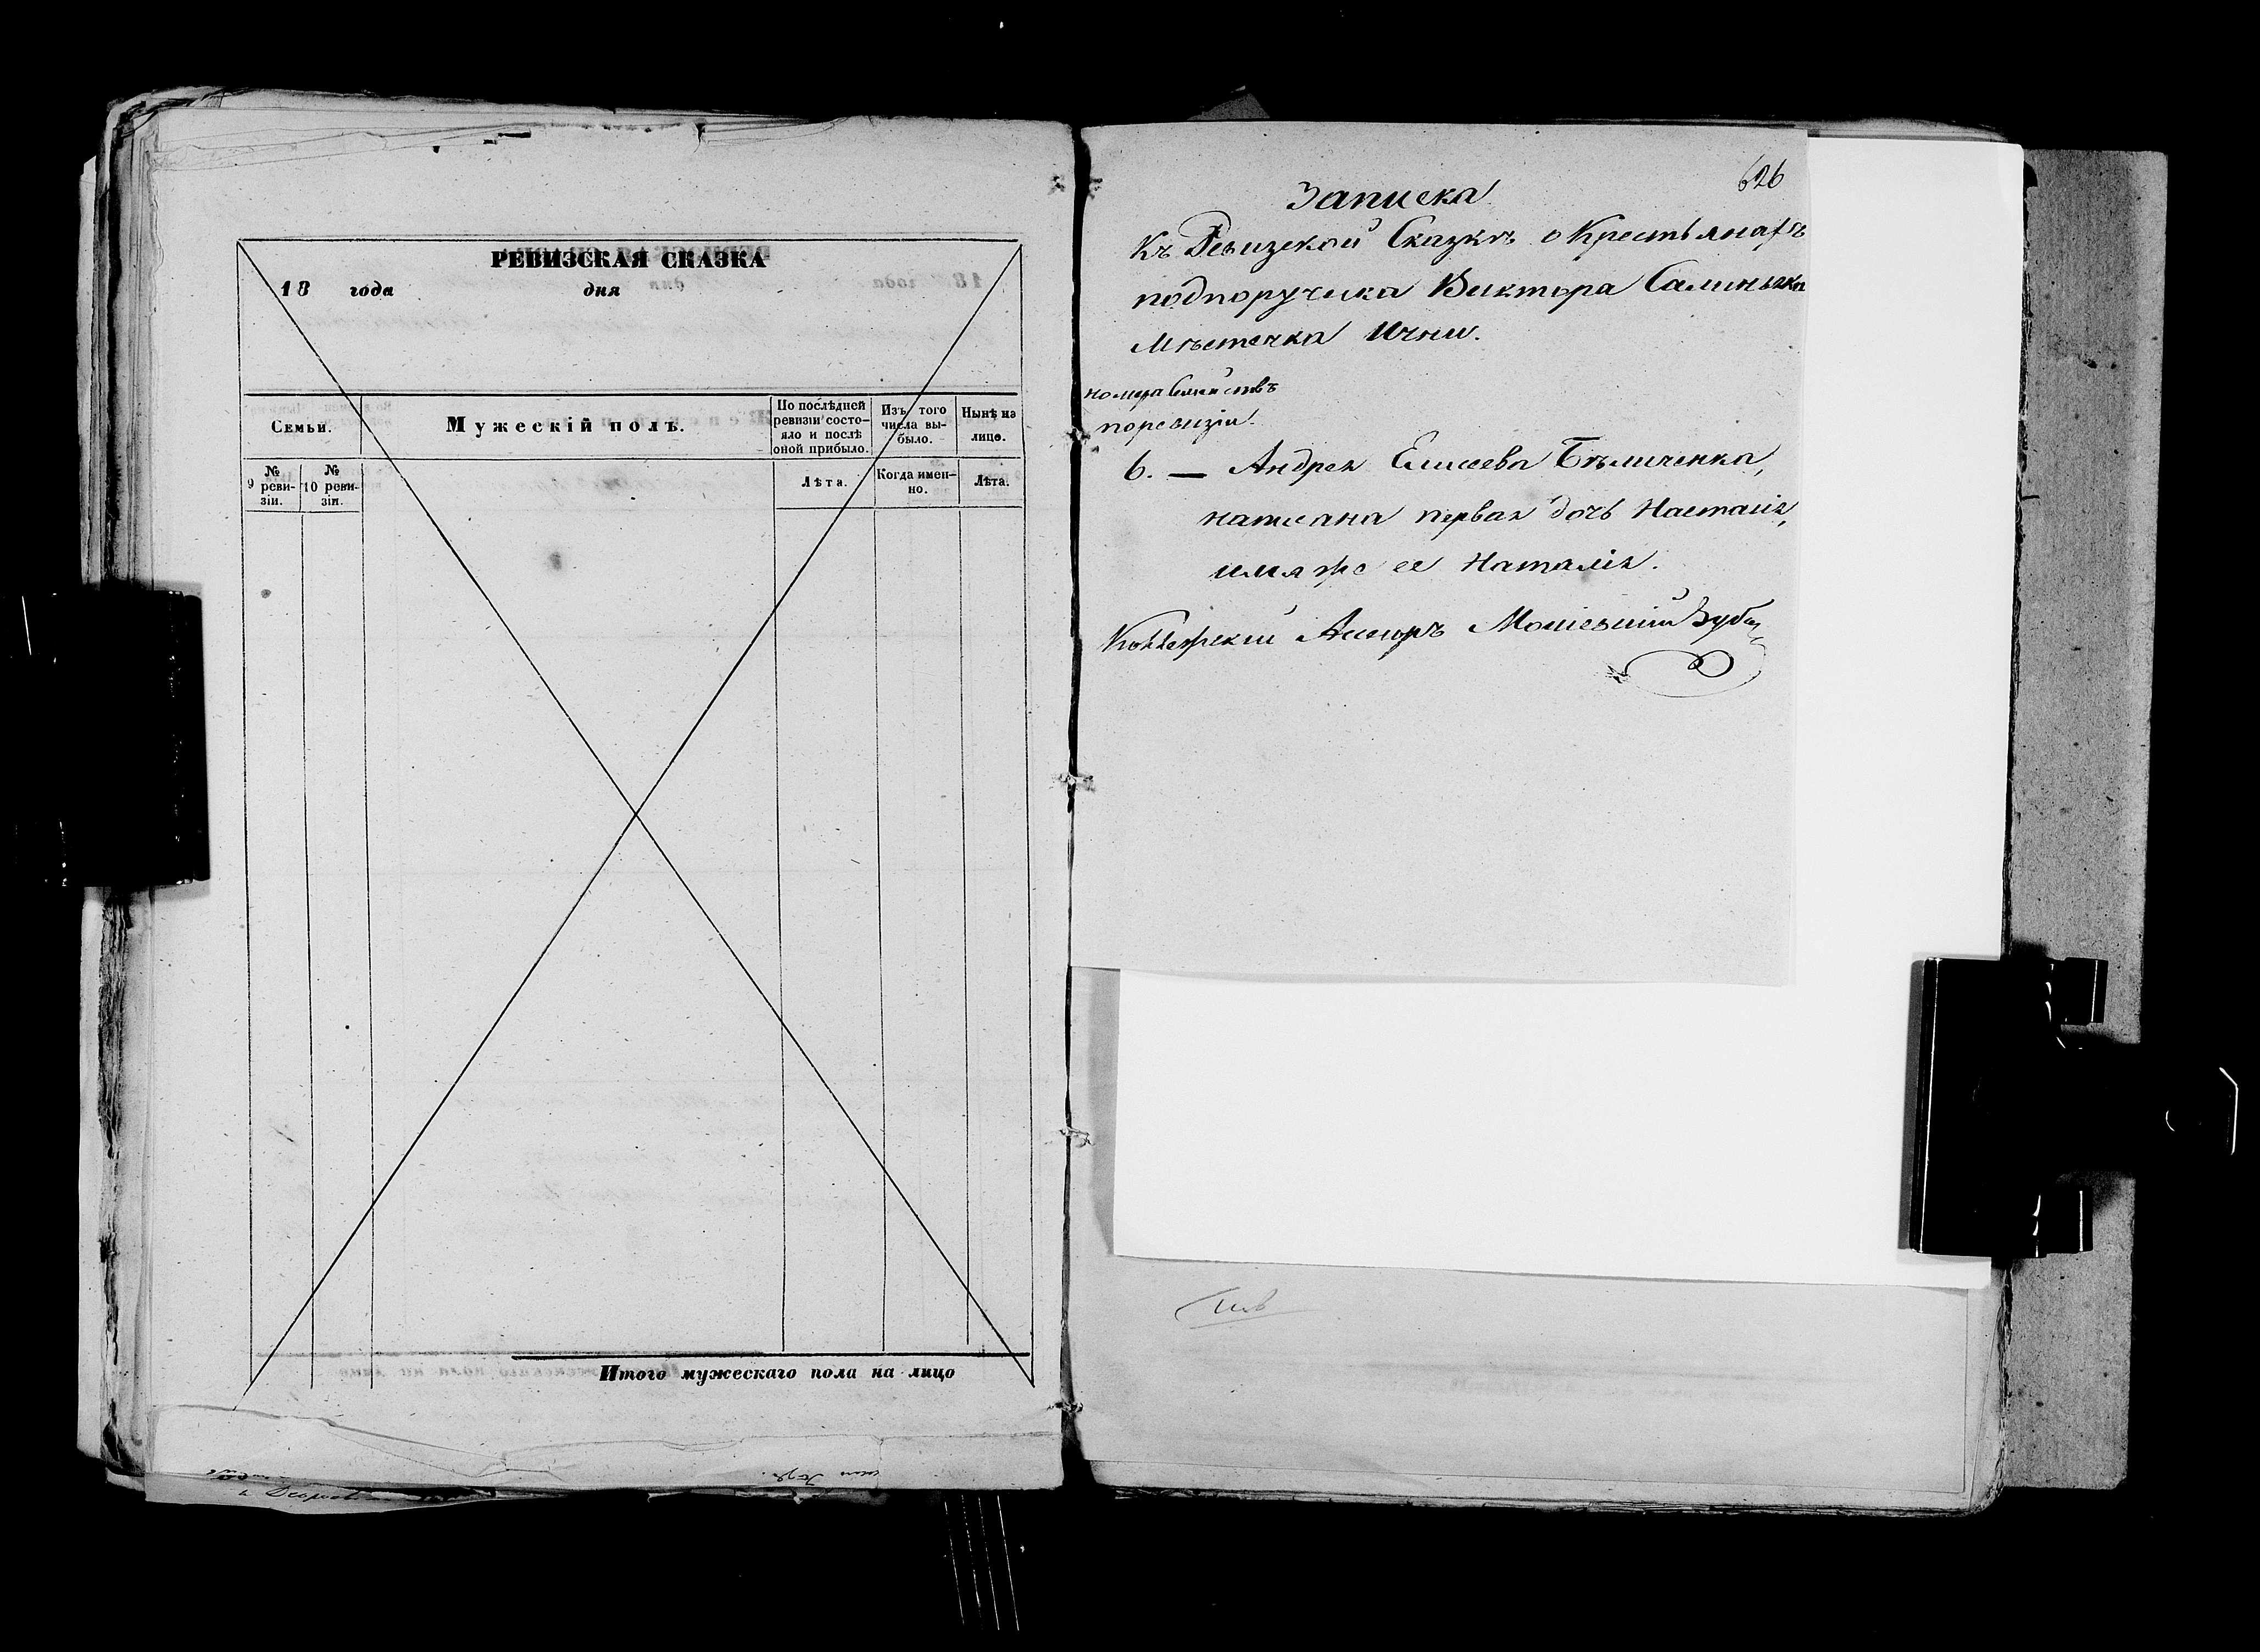 РЕВИЗСКАЯ СКАЗКА
18 года дня
Семьи.
Мужескій полъ.
По послѣдней ревизіи состо-
яло и послѣ
оной прибыло.
Изъ того
числа вы-
было.
Нынѣ на
лицо.
№
9 реви-
зіи.
№
10 реви-
зіи.
Лѣта.
Когда имен-
но.
Лѣта.
Итого мужескаго пола на лицо
626
Записка
Къ Ревизской Сказкѣ о Крестьянахъ
подпоручика Виктора
Мѣстечка Ични.
номера Семействъ
по ревизіи.
6. — Андрея Елисеева Бѣличенка,
написана первая дочь Настасія,
имя же ее Наталія.
Коллежскій Ассесоръ